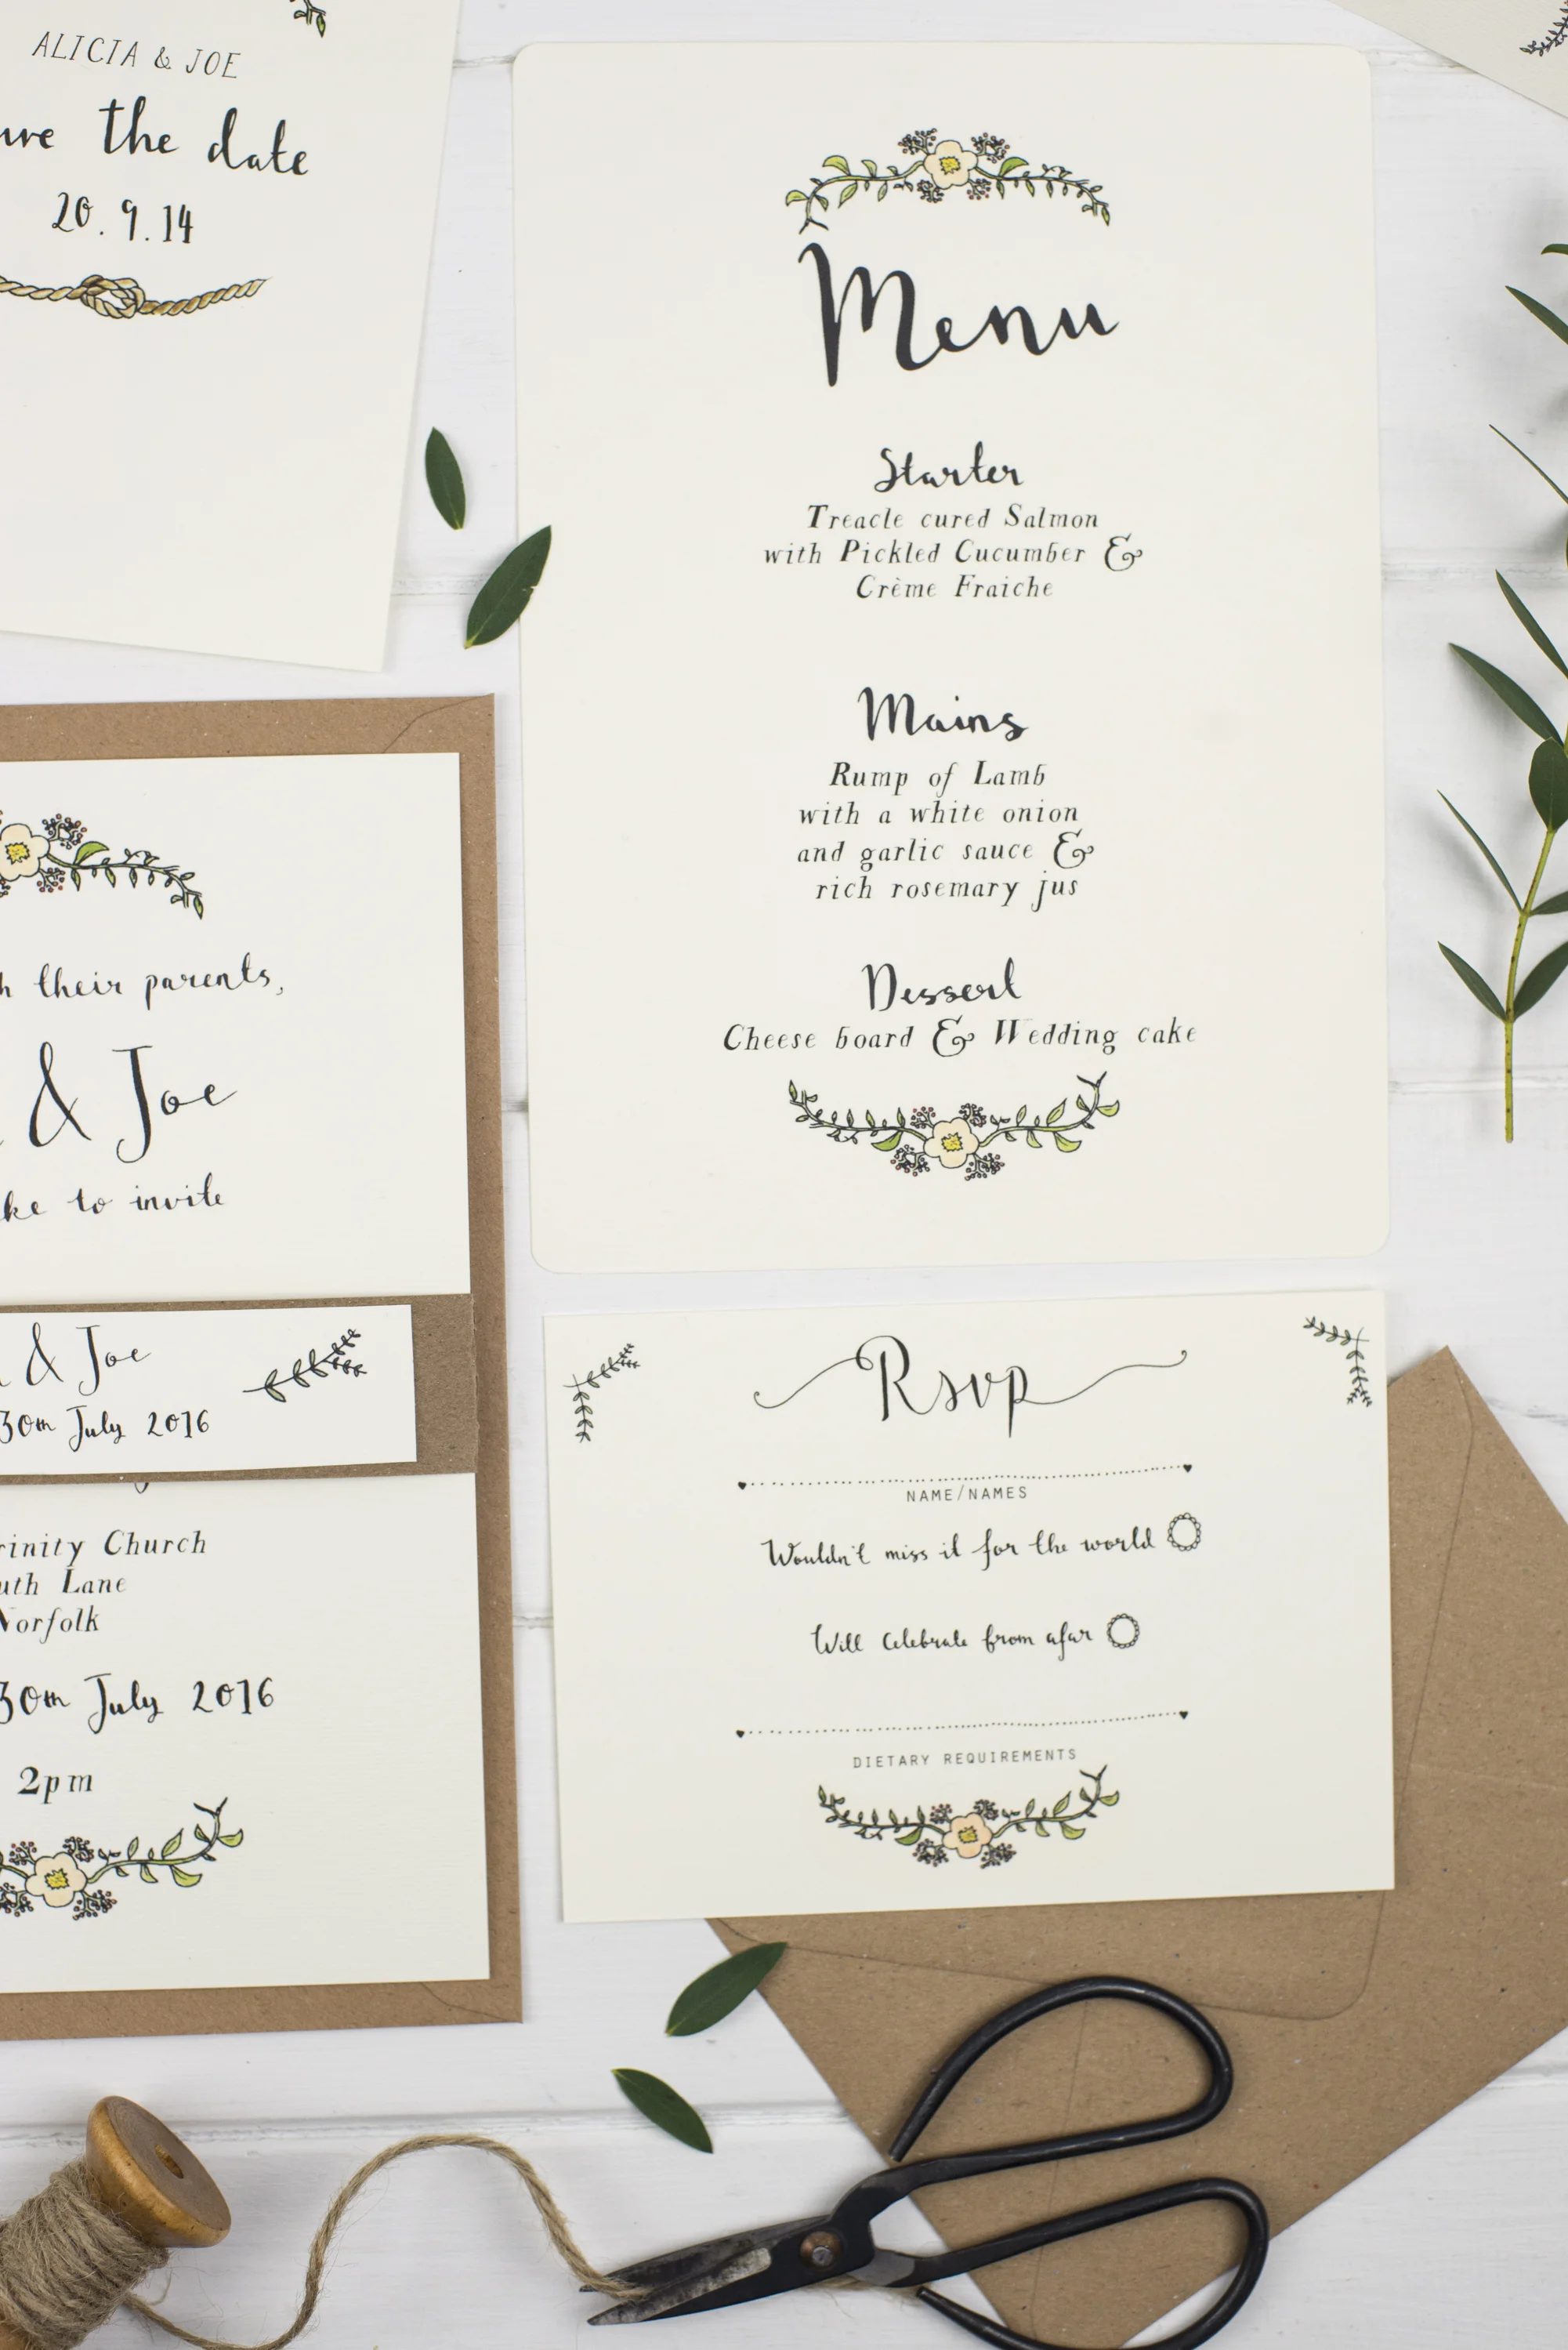 ALICIA & JOE
the date
20.9.14
Menu
Starter
Treacle cured Salmon
with Pickled Cucumber &
Crème Fraiche
Mains
Rump of Lamb
with a white onion
and garlic sauce &
rich rosemary jus
Dessert
Cheese board & Wedding cake
their parents,
& Joe
to invite
& Joe
30th July 2016
Church
Lane
Norfolk
30th July 2016
2pm
Rsvp
NAME/NAMES
Wouldn't miss it for the world
Will celebrate from afar
DIETARY REQUIREMENTS